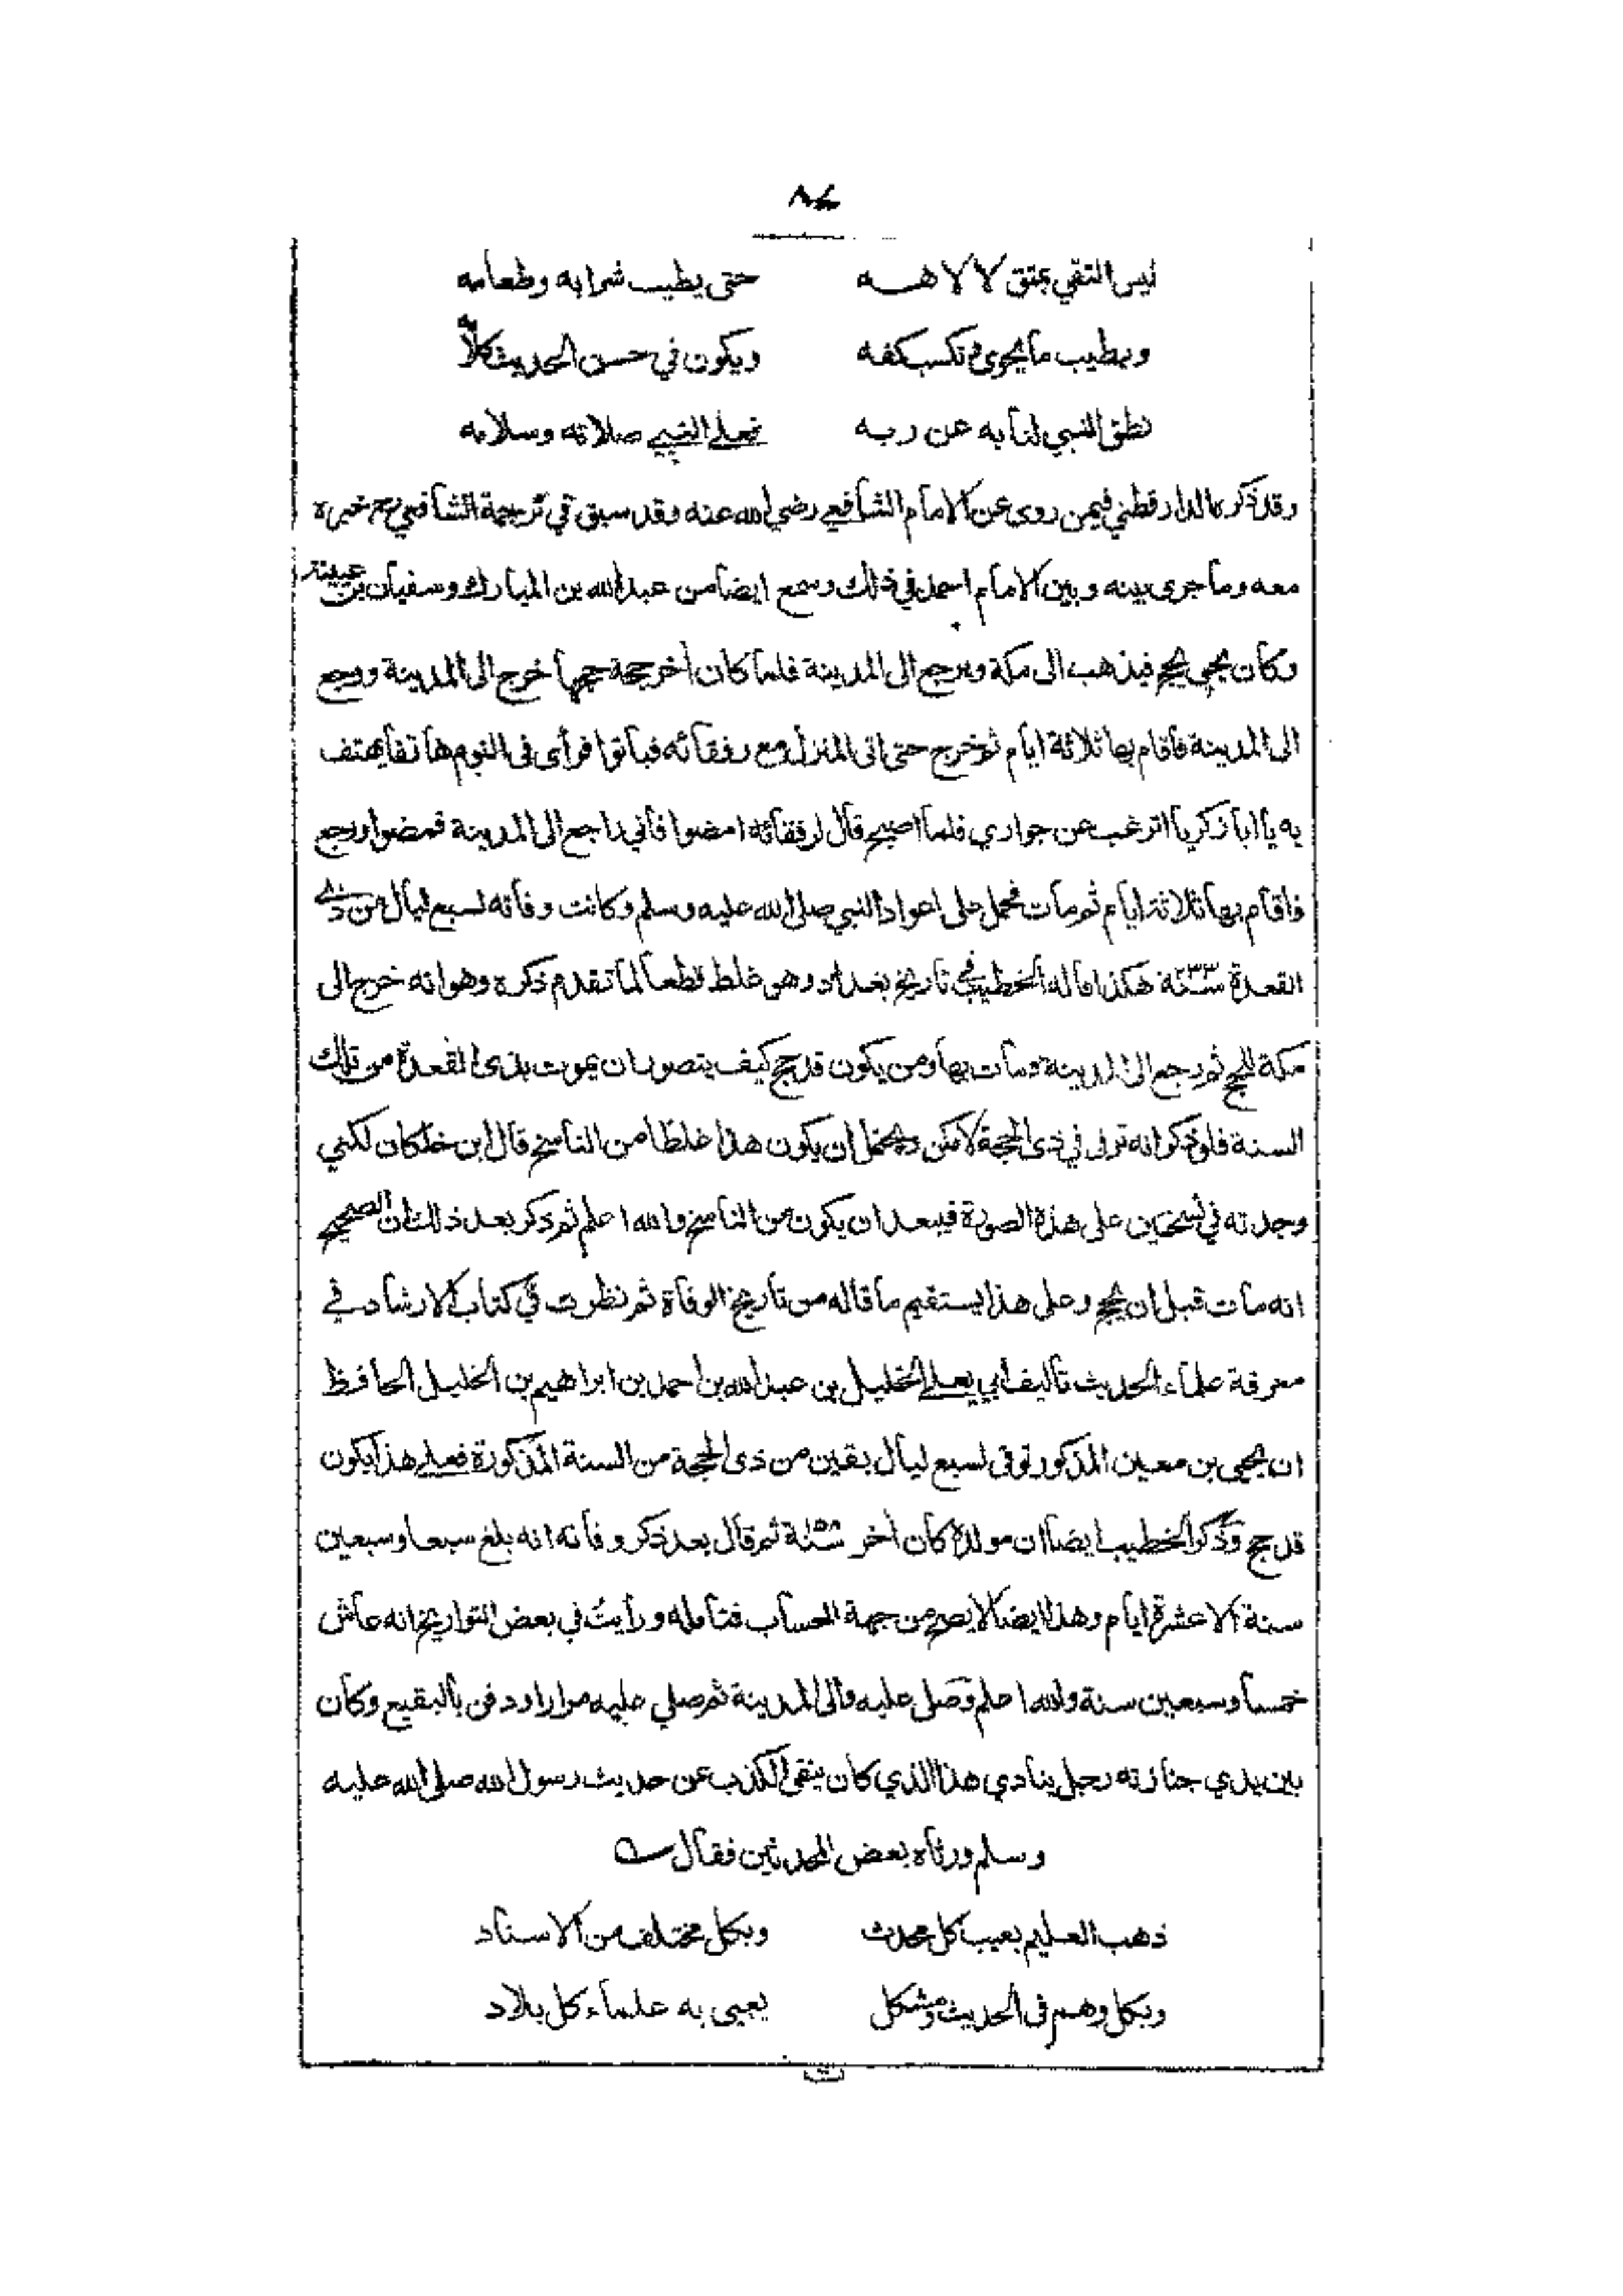 ليس التقي بمتق لالاهه حتى يطيب شرابه وطعامه
ويطيب ما يحوى وتكسب كفه ويكون في حسن الحديث كلامه
نطق النبي لنا به عن ربه فعلى النبي صلاته وسلامه
وقد ذكره الدارقطني فيمن روى عن الامام الشافعي رضي الله عنه وقد سبق في ترجمة الشافعي مع خبره
معه وما جرى بينه وبين الامام احمد في ذلك وسمع ايضا من عبد الله بن المبارك وسفيان بن عيينة
وكان يحيى يحج فيذهب الى مكة ويرجع الى المدينة فلما كان أخر حجة حجها خرج الى المدينة ورجع
الى المدينة فاقام بها ثلاثة ايام ثم خرج حتى اتى المنزل مع رفقائه فباتوا فرأى في النوم هاتفا يهتف
به يا ابا زكريا اترغب عن جواري فلما اصبح قال لرفقائه امضوا فاني راجع الى المدينة فمضوا ورجع
فاقام بها ثلاثة ايام ثم مات فحمل على اعواد النبي صلى الله عليه وسلم وكانت وفاته لسبع ليال من ذي
القعدة سنة هكذا قاله الخطيب في تاريخ بغداد وهو غلط قطعا لما تقدم ذكره وهو انه خرج الى
مكة للحج ثم رجع الى المدينة ومات بها ومن يكون قد حج كيف يتصور ان يموت بذى القعدة من تلك
السنة فلو ذكر انه توفى في ذى الحجة لامكن ويحتمل ان يكون هذا غلطا من الناسخ قال ابن خلكان لكني
وجدته في نسختين على هذه الصورة فيبعد ان يكون من الناسخ والله اعلم ثم ذكر بعد ذلك ان الصحيح
انه مات قبل ان يحج وعلى هذا يستقيم ما قاله من تاريخ الوفاة ثم نظرت في كتاب الارشاد في
معرفة علماء الحديث تأليف أبي يعلى الخليل بن عبد الله بن احمد بن ابراهيم بن الخليل الحافظ
ان يحيى بن معين المذكور توفى لسبع ليال بقين من ذى الحجة من السنة المذكورة فعلى هذا يكون
قد حج وذكر الخطيب ايضا ان مولده كان أخر سنة ثم قال بعد ذكر وفاته انه بلغ سبعا وسبعين
سنة الا عشرة ايام وهذا ايضا لا يصح من جهة الحساب فتأمله ورأيت في بعض التواريخ انه عاش
خمسا وسبعين سنة والله اعلم وصلى عليه والى المدينة ثم صلي عليه مرارا ودفن بالبقيع وكان
بين يدي جنازته رجل ينادي هذا الذي كان ينفى الكذب عن حديث رسول الله صلى الله عليه
وسلم ورثاه بعض المحدثين فقال
ذهب العليم بعيب كل محدث وبكل مختلف من الاسناد
وبكل وهم في الحديث ومشكل يعيى به علماء كل بلاد